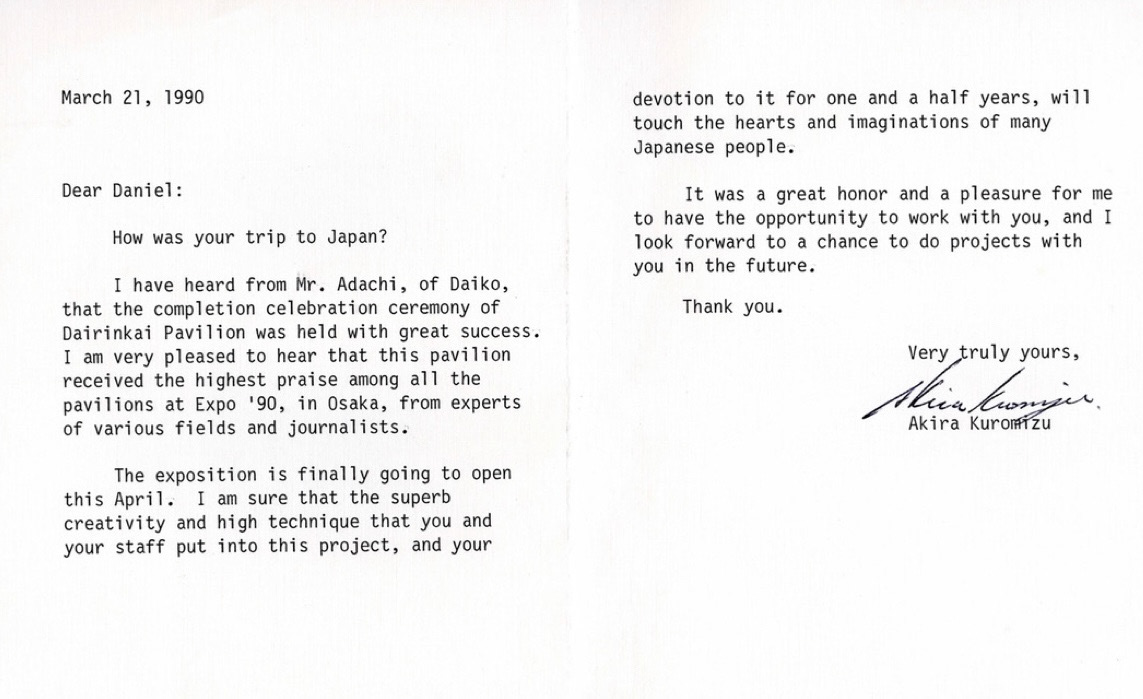 March 21, 1990
Dear Daniel:
How was your trip to Japan?
I have heard from Mr. Adachi, of Daiko,
that the completion celebration ceremony of
Dairinkai Pavilion was held with great success.
I am very pleased to hear that this pavilion
received the highest praise among all the
pavilions at Expo '90, in Osaka, from experts
of various fields and journalists.
The exposition is finally going to open
this April. I am sure that the superb
creativity and high technique that you and
your staff put into this project, and your
devotion to it for one and a half years, will
touch the hearts and imaginations of many
Japanese people.
It was a great honor and a pleasure for me
to have the opportunity to work with you, and I
look forward to a chance to do projects with
you in the future.
Thank you.
Very truly yours,
Akira Kuromizu
Akira Kuromizu